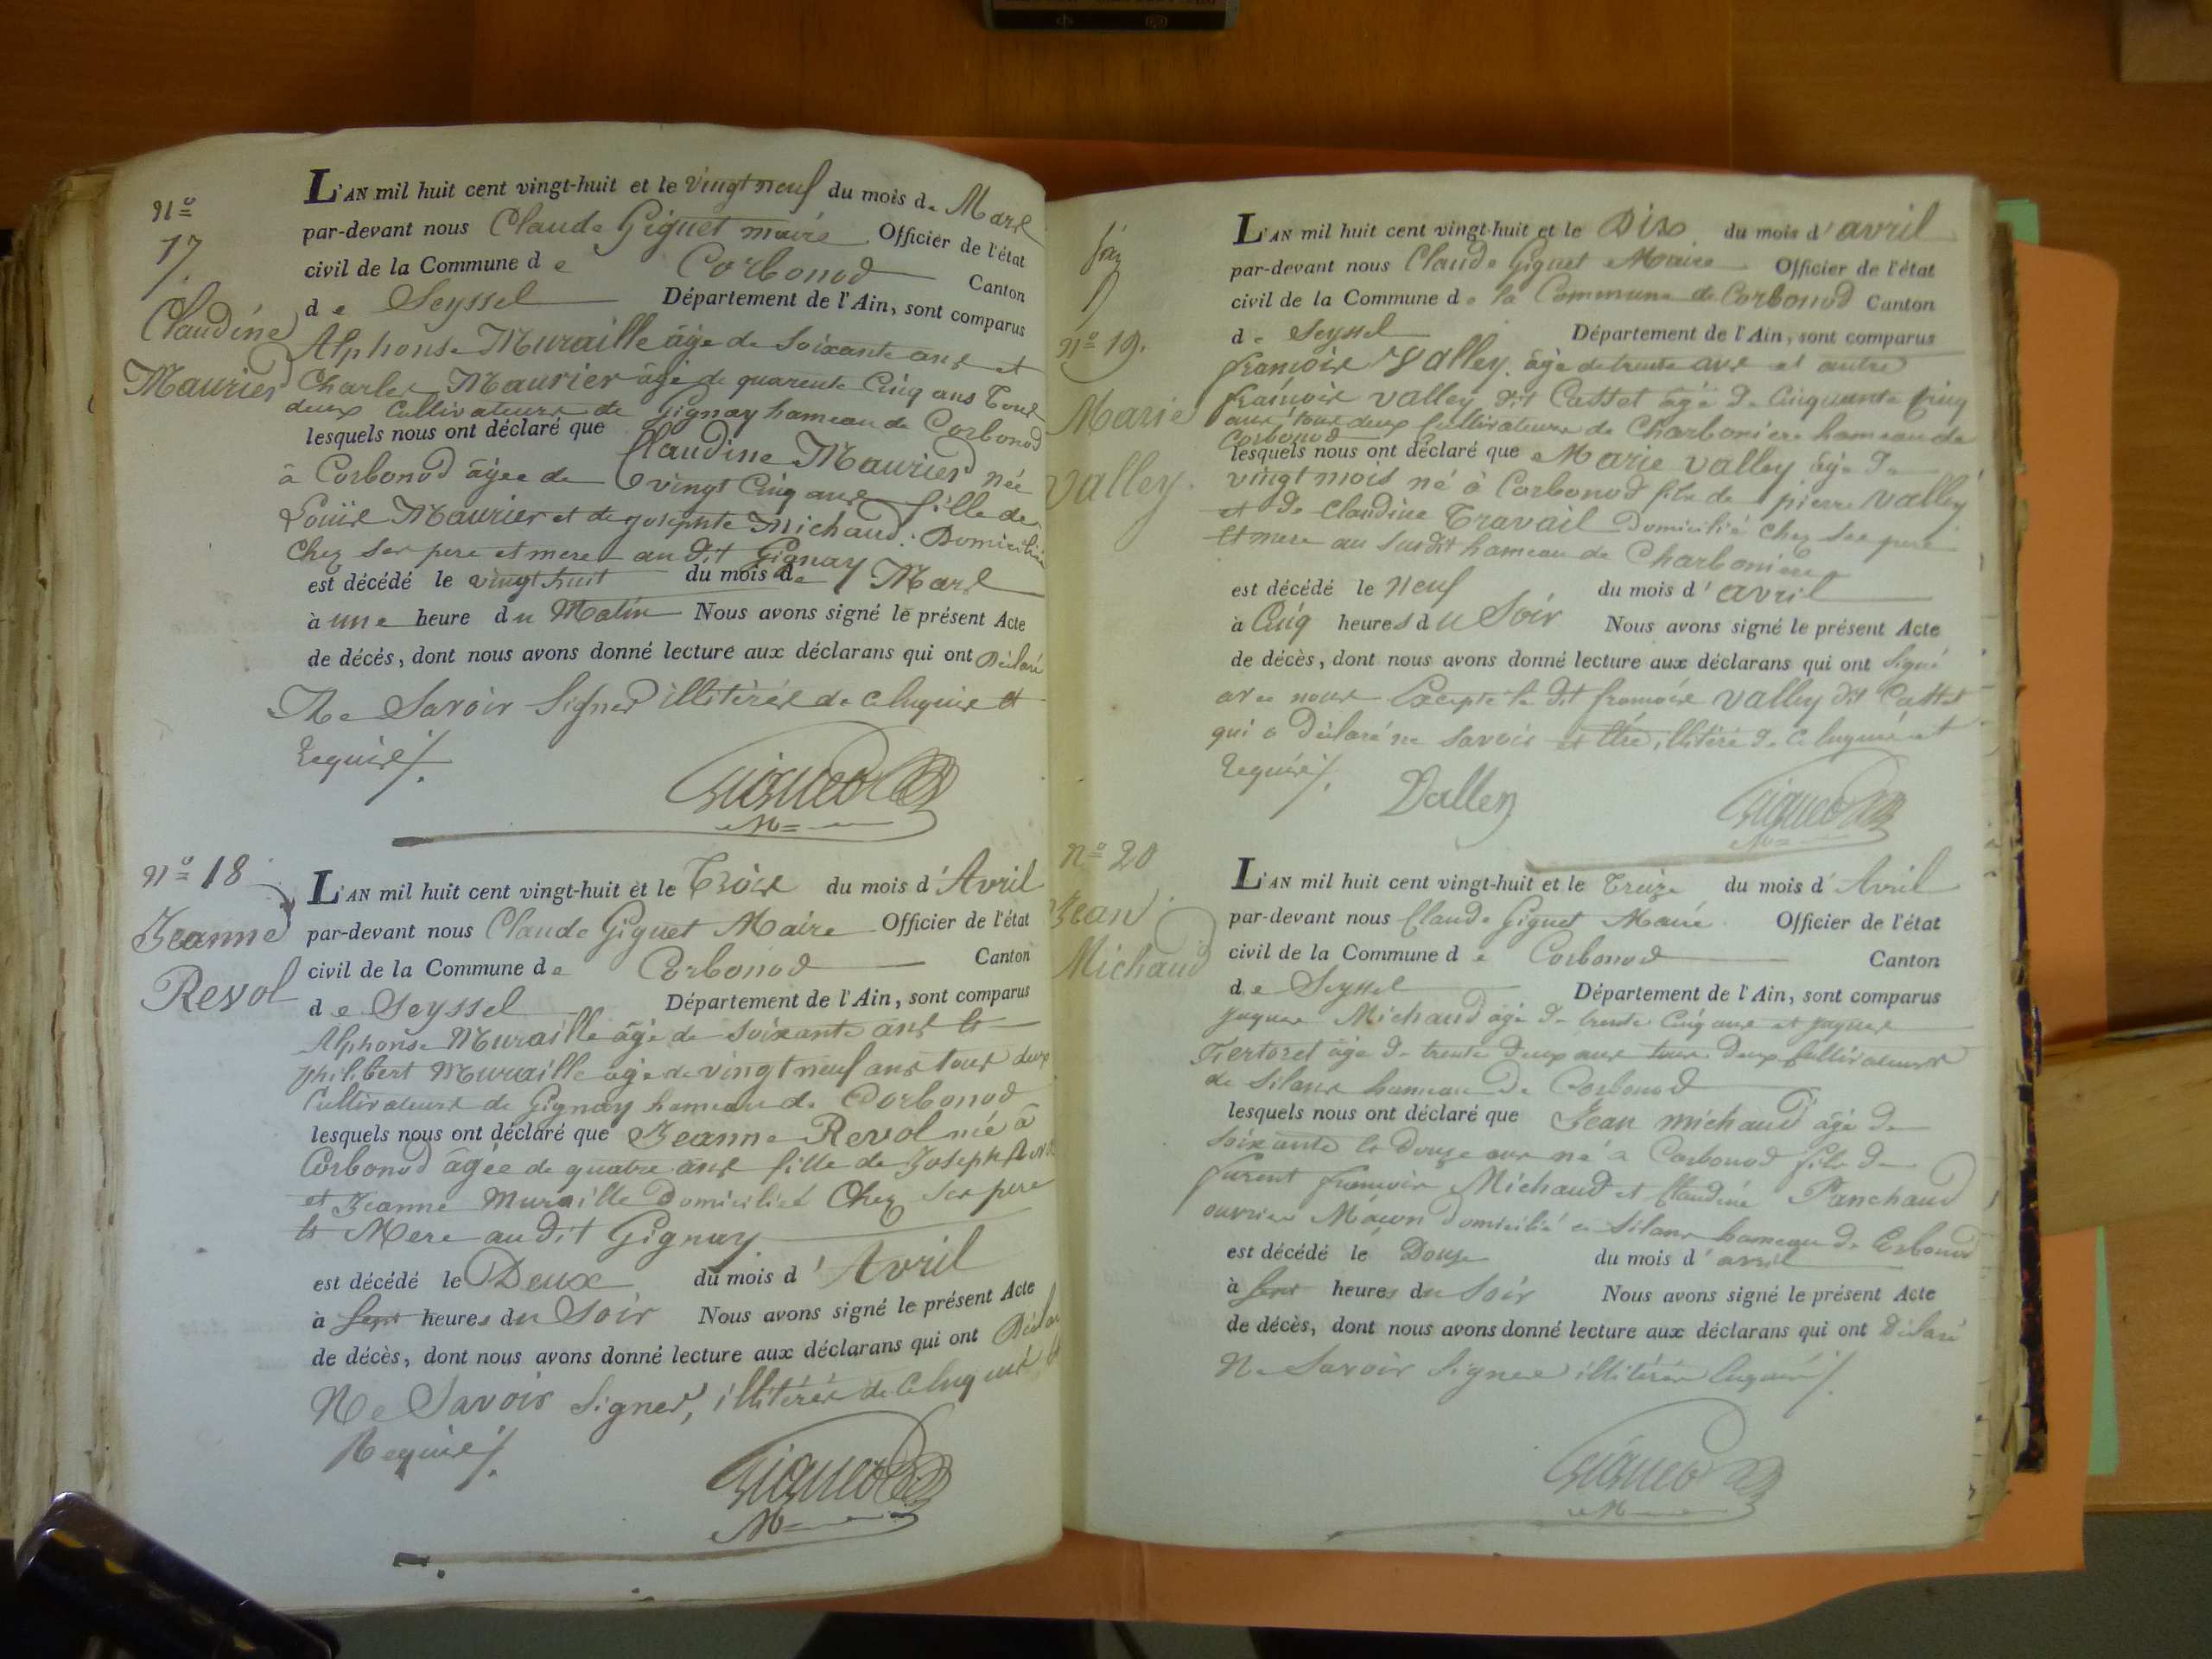 N°
17
Claudine
Maurier
L'AN mil huit cent vingt-huit et le vingt neuf du mois de Mars
par-devant nous Claude Giguet maire Officier de l'état
civil de la Commune de Corbonod Canton
de Seyssel Département de l'Ain, sont comparus
Alphonse Muraille âgé de Soixante ans et
Charles Maurier âgé de quarente Cinq ans Tous
deux Cultivateurs de Gignay hameau de Corbonod
lesquels nous ont déclaré que Claudine Maurier née
à Corbonod âgée de vingt Cinq ans fille de
Louis Maurier et de josephte Michaud. Domiciliée
Chez ses pere et mere au dit Gignay
est décédé le vingt huit du mois de Mars
à une heure du Matin Nous avons signé le présent Acte
de décés, dont nous avons donné lecture aux déclarans qui ont Déclaré
Ne Savoir Signer illitérés de ce enquis et
Requis /.
Giguet
M=
N° 18
Jeanne
Revol
L'AN mil huit cent vingt-huit et le Trois du mois d'Avril
par-devant nous Claude Giguet Maire Officier de l'état
civil de la Commune de Corbonod Canton
de Seyssel Département de l'Ain, sont comparus
Alphonse Muraille âgé de Soixante ans et
philibert Muraille âgé de vingt neuf ans tous deux
Cultivateurs de Gignay hameau de Corbonod
lesquels nous ont déclaré que Jeanne Revol née à
Corbonod âgée de quatre ans fille de Joseph Revol
et Jeanne Muraille Domiciliée Chez ses pere
et Mere au dit Gignay
est décédé le Deux du mois d'Avril
à Sept heures du Soir Nous avons signé le présent Acte
de décès, dont nous avons donné lecture aux déclarans qui ont Déclaré
Ne Savoir Signer, illitérés de ce enquis et
Requis /.
Giguet
M=
n° 19.
Marie
Valley.
L'AN mil huit cent vingt-huit et le Dix du mois d'avril
par-devant nous Claude Giguet Maire Officier de l'état
civil de la Commune de la Commune de Corbonod Canton
de Seyssel Département de l'Ain, sont comparus
françois Valley. âgé de trente ans et autre
françois Valley dit Cattet âgé de Cinquante Cinq
ans, tous deux Cultivateurs de Charboniere hameau de
Corbonod
lesquels nous ont déclaré que Marie Valley âgé de
vingt mois né à Corbonod fils de pierre Valley
et de Claudine Travail Domicilié chez ses pere
et mere au susdit hameau de Charboniere
est décédé le Neuf du mois d'avril
à Cinq heures du Soir Nous avons signé le présent Acte
de décès, dont nous avons donné lecture aux déclarans qui ont signé
avec nous Excepté le dit françois Valley dit Cattet
qui a Déclaré ne Savoir et être illitéré de ce enquis et
Requis /.
Valley
Giguet
M=
n° 20
Jean
Michaud
L'AN mil huit cent vingt-huit et le Treize du mois d'Avril
par-devant nous Claude Giguet Maire Officier de l'état
civil de la Commune de Corbonod Canton
de Seyssel Département de l'Ain, sont comparus
Jaques Michaud âgé de trente Cinq ans et Jaques
âgé de trente Deux ans tous deux Cultivateurs
de Silans hameau de Corbonod
lesquels nous ont déclaré que Jean Michaud âgé de
Soixante et Douze ans né à Corbonod fils de
furent françois Michaud et Claudine Panchaud
ouvrier Maçon domicilié à Silans hameau de Corbonod
est décédé le Douze du mois d'avril
à Sept heures du Soir Nous avons signé le présent Acte
de décès, dont nous avons donné lecture aux déclarans qui ont Déclaré
Ne Savoir Signer illitérés Enquis /.
Giguet
M